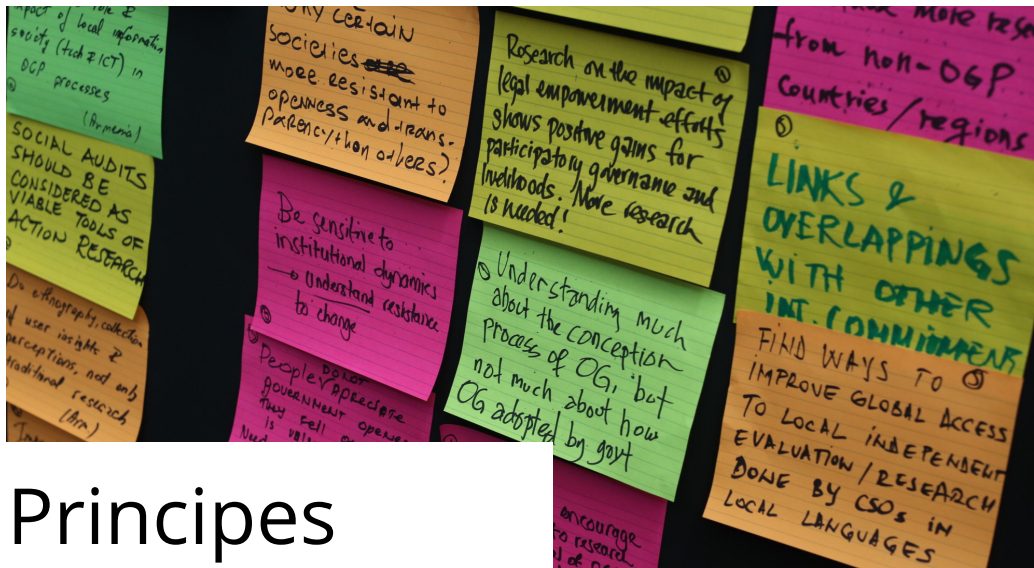 of local information
society (tech & ICT) in
OGP processes
(Armenia)
SOCIAL AUDITS
SHOULD BE
CONSIDERED AS
VIABLE TOOLS OF
ACTION RESEARCH
Do ethnography, collection
user insights &
perceptions, not only
traditional
research
CERTAIN
societies
more resistant to
openness and trans-
parency than others?
Be sensitive to
institutional dynamics
→ Understand resistance
to change
DO NOT
People APRECIATE
GOVERNMENT
They
is
Need
Research on the impact of
legal empowerment efforts
shows positive gains for
participatory governance and
livelihoods. More research
is needed!
Understanding much
about the conception
process of OG, but
not much about how
OG adopted by govt
encourage
to research
more
from non-OGP
Countries/regions
LINKS &
OVERLAPPINGS
WITH OTHER
INT. COMMITMENTS
FIND WAYS TO
IMPROVE GLOBAL ACCESS
TO LOCAL INDEPENDENT
EVALUATION/RESEARCH
DONE BY CSOs IN
LOCAL LANGUAGES
Principes